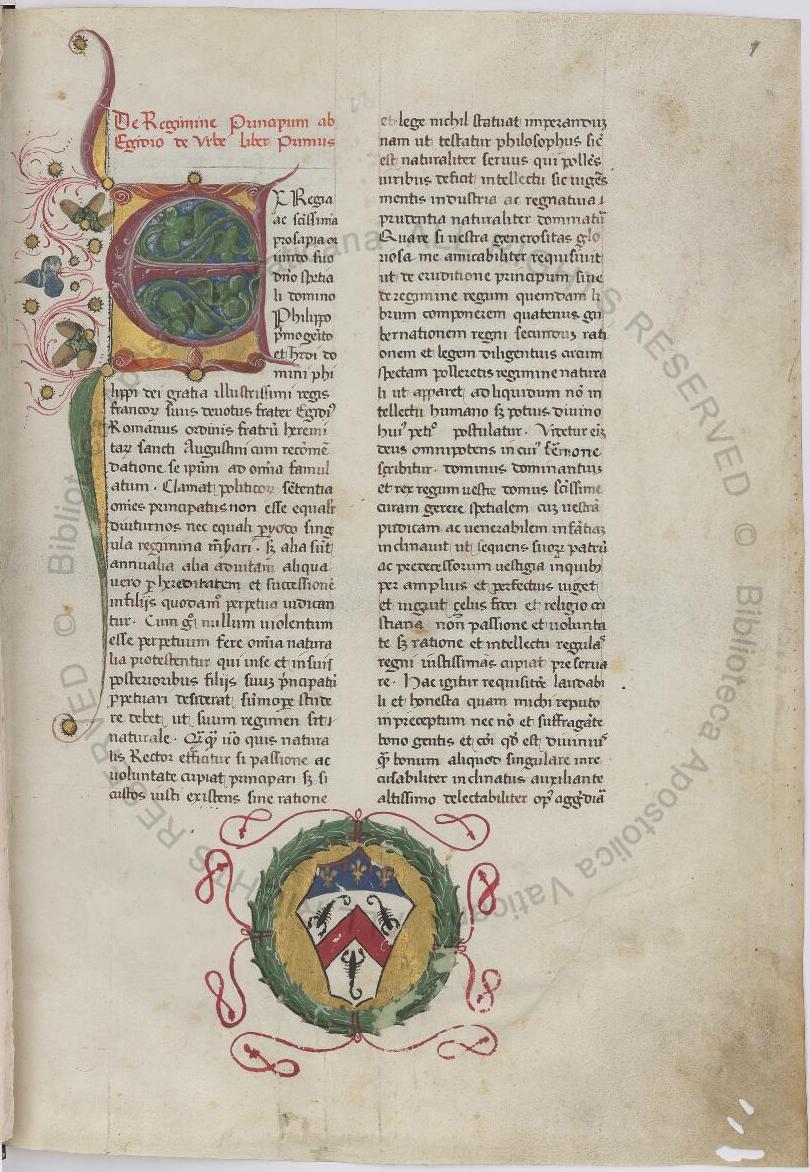 1
De Regimine Principum ab
Egidio de Vrbe liber Primus
X Regia
ac scīssima
prosapia or
iundo suo
dn̄o spetia
li domino
Philippo
pͥmogeīto
et hrdi do
mini phi
lippi dei gratia illustrissimi regis
francorꝝ suus deuotus frater Egidi᾽
Romanus ordinis fratrū heremi
tarꝝ sancti Augustini cum recōmē
datione se ip̄um ad om̄ia famul
atum . Clamat politicorꝝ sētentia
om̄es principatus non esse equalr̄
diuturnos nec equali ꝑyodo sing
ula regimina mn̄surari . sꝫ alia sūt
annualia alia aduitam aliqua
uero ꝑ hereditatem et successionē
in filijs quodam̄ perpetua iudican
tur . Cum gͦ nullum uiolentum
esse perpetuum fere om̄ia natura
lia protestentur qui inse et insuis
posterioribus filijs suuꝫ pͥncipatū
ꝑpetuari desiderat sūmoꝑe stude
re debet ut suum regimen sit
naturale .
lis Rector efficitur si passione ac
uoluntate cupiat principari sꝫ si
custos iusti existens sine ratione
et lege nichil statuat imperanduꝫ
nam ut testatur philosophus sic̄
est naturaliter seruus qui pollēs
uiribus deficit intellectu sic uigēs
mentis industria ac regnatiua
prudentia naturaliter dominatū
Quare si uestra generositas glo
riosa me amicabiliter requisiuit
ut de eruditione principum siue
de regimine regum quemdam li
brum componerem quatenus gu
bernationem regni secunduꝫ rati
onem et legem diligentius circum
spectam polleretis regimine natura
li ut apparet ad liquidum nō in
tellectu humano sꝫ potius diuino
hui᾽ petiº postulatur . Videtur eiꝫ
deus omnipotens in cui᾽ fēmore
scribitur . dominus dominantiuꝫ
et rex regum uestre domus scīssime
curam gerere spetialem cuꝫ uestrā
pudicam ac uenerabilem infātiaꝫ
inclinauit ut sequens suorꝫ patrū
ac predecessorum uestigia in quibꝫ
per amplius et perfectius uiget
et uiguit çelus fidei et religio cri
stiana non passione et uolunta
te sꝫ ratione et intellectu regulaˢ
regni iustissimas cupiat preserua
re . Hac igitur requisitōe laudabi
li et honesta quam michi reputo
in preceptum nec nō et suffragāte
bono gentis et cōi qd̄ est diuiniusˢ
qͣ bonum aliquod singulare inre
cusabiliter inclinatus auxiliante
altissimo delectabiliter opˢ aggdiā